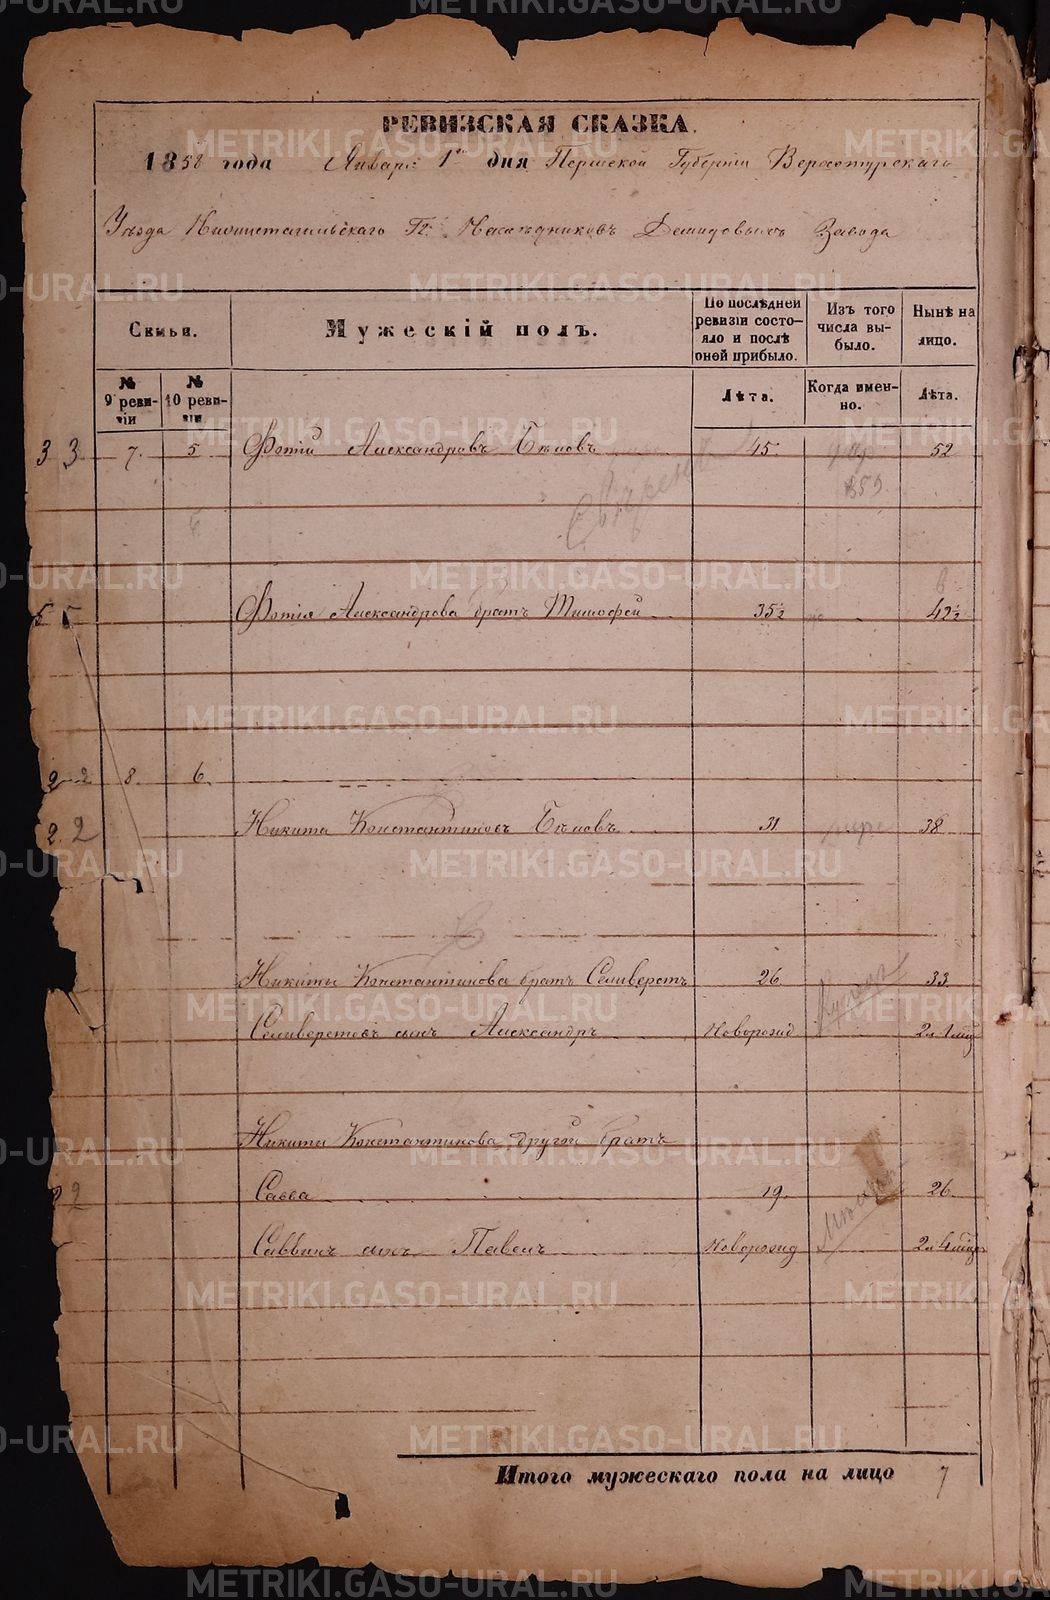 РЕВИЗСКАЯ СКАЗКА.
1858 года Январ: 1го дня Пермской Губерніи Верхотурскаго
Уѣзда Нижнетагильскаго Гг. Наслѣдниковъ Демидовыхъ Завода
Семьи.
Мужескій полъ.
По послѣдней ревизіи состояло и послѣ оней прибыло.
Изъ того числа выбыло.
Нынѣ на лицо.
№ 9 ревизіи
№ 10 ревизіи
Лѣта.
Когда именно.
Лѣта.
3 3 7. 5 Фотій Александровъ Бѣловъ 45 52
859
5 5 Фотія Александрова братъ Тимофей 35½ 42½
2 2 8. 6.
2. 2 Никита Константиновъ Бѣловъ 31 38
Никиты Константинова братъ Селиверстъ 26 33
Селиверстовъ сынъ Александръ Новорожд 2л 1мѣс
Никиты Константинова другой братъ
2 2 Савва 19. 26
Саввинъ сынъ Павелъ Новорожд 2л 4мѣс
Итого мужескаго пола на лицо 7
METRIKI.GASO-URAL.RU